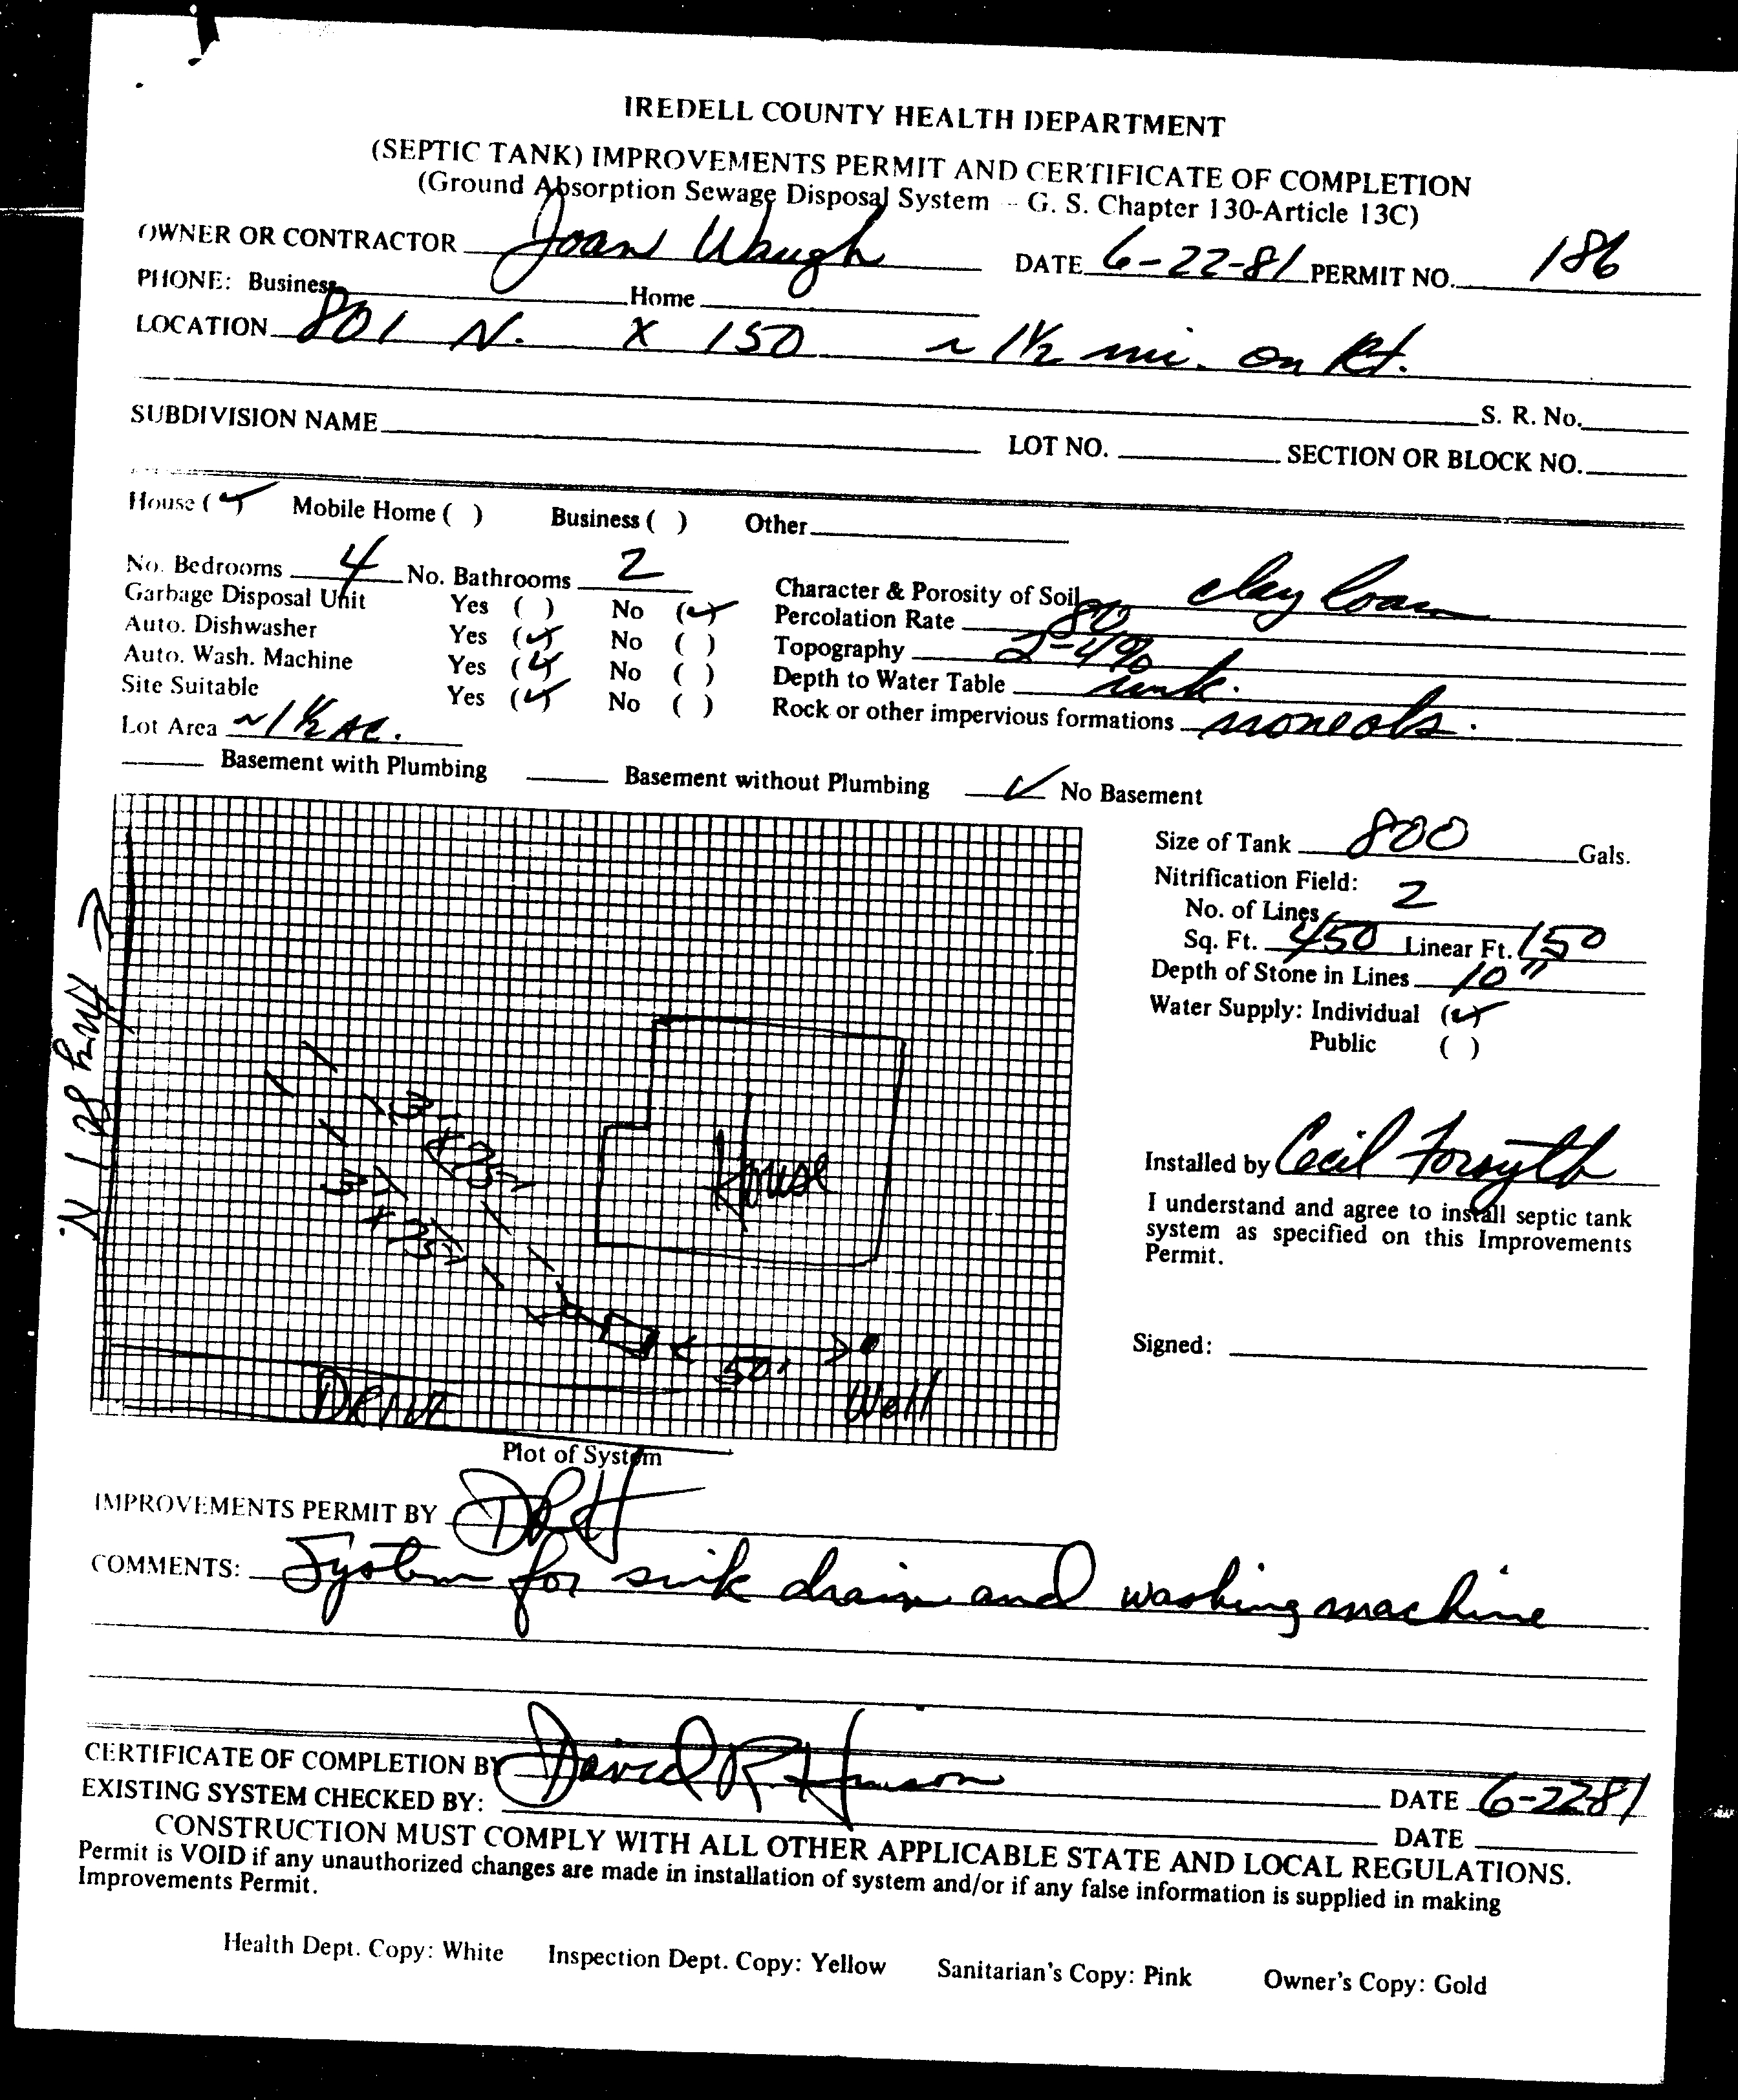 IREDELL COUNTY HEALTH DEPARTMENT
(SEPTIC TANK) IMPROVEMENTS PERMIT AND CERTIFICATE OF COMPLETION
(Ground Absorption Sewage Disposal System -- G. S. Chapter 130-Article 13C)
OWNER OR CONTRACTOR Joan Waugh DATE 6-22-81 PERMIT NO. 186
PHONE: Business Home
LOCATION 801 N. X 150 ~ 1½ mi. on Rt.
S. R. No.
SUBDIVISION NAME LOT NO. SECTION OR BLOCK NO.
House (✓) Mobile Home ( ) Business ( ) Other
No. Bedrooms 4 No. Bathrooms 2 Character & Porosity of Soil clay loam
Garbage Disposal Unit Yes ( ) No (✓) Percolation Rate 80
Auto. Dishwasher Yes (✓) No ( ) Topography 2-4%
Auto. Wash. Machine Yes (✓) No ( ) Depth to Water Table unk.
Site Suitable Yes (✓) No ( ) Rock or other impervious formations none obs.
Lot Area ~1½ AC.
Basement with Plumbing Basement without Plumbing ✓ No Basement
Size of Tank 800 Gals.
Nitrification Field:
No. of Lines 2
Sq. Ft. 450 Linear Ft. 150
Depth of Stone in Lines 10"
Water Supply: Individual (✓)
Public ( )
N. | 08 hwy →
3' x 75'
3' x 75'
House
50'
Well
DRIVE
Installed by Cecil Forsyth
I understand and agree to install septic tank
system as specified on this Improvements
Permit.
Signed:
Plot of System
IMPROVEMENTS PERMIT BY DRH
COMMENTS: System for sink drain and washing machine
CERTIFICATE OF COMPLETION BY David R Hinson DATE 6-22-81
EXISTING SYSTEM CHECKED BY: DATE
CONSTRUCTION MUST COMPLY WITH ALL OTHER APPLICABLE STATE AND LOCAL REGULATIONS.
Permit is VOID if any unauthorized changes are made in installation of system and/or if any false information is supplied in making
Improvements Permit.
Health Dept. Copy: White Inspection Dept. Copy: Yellow Sanitarian's Copy: Pink Owner's Copy: Gold